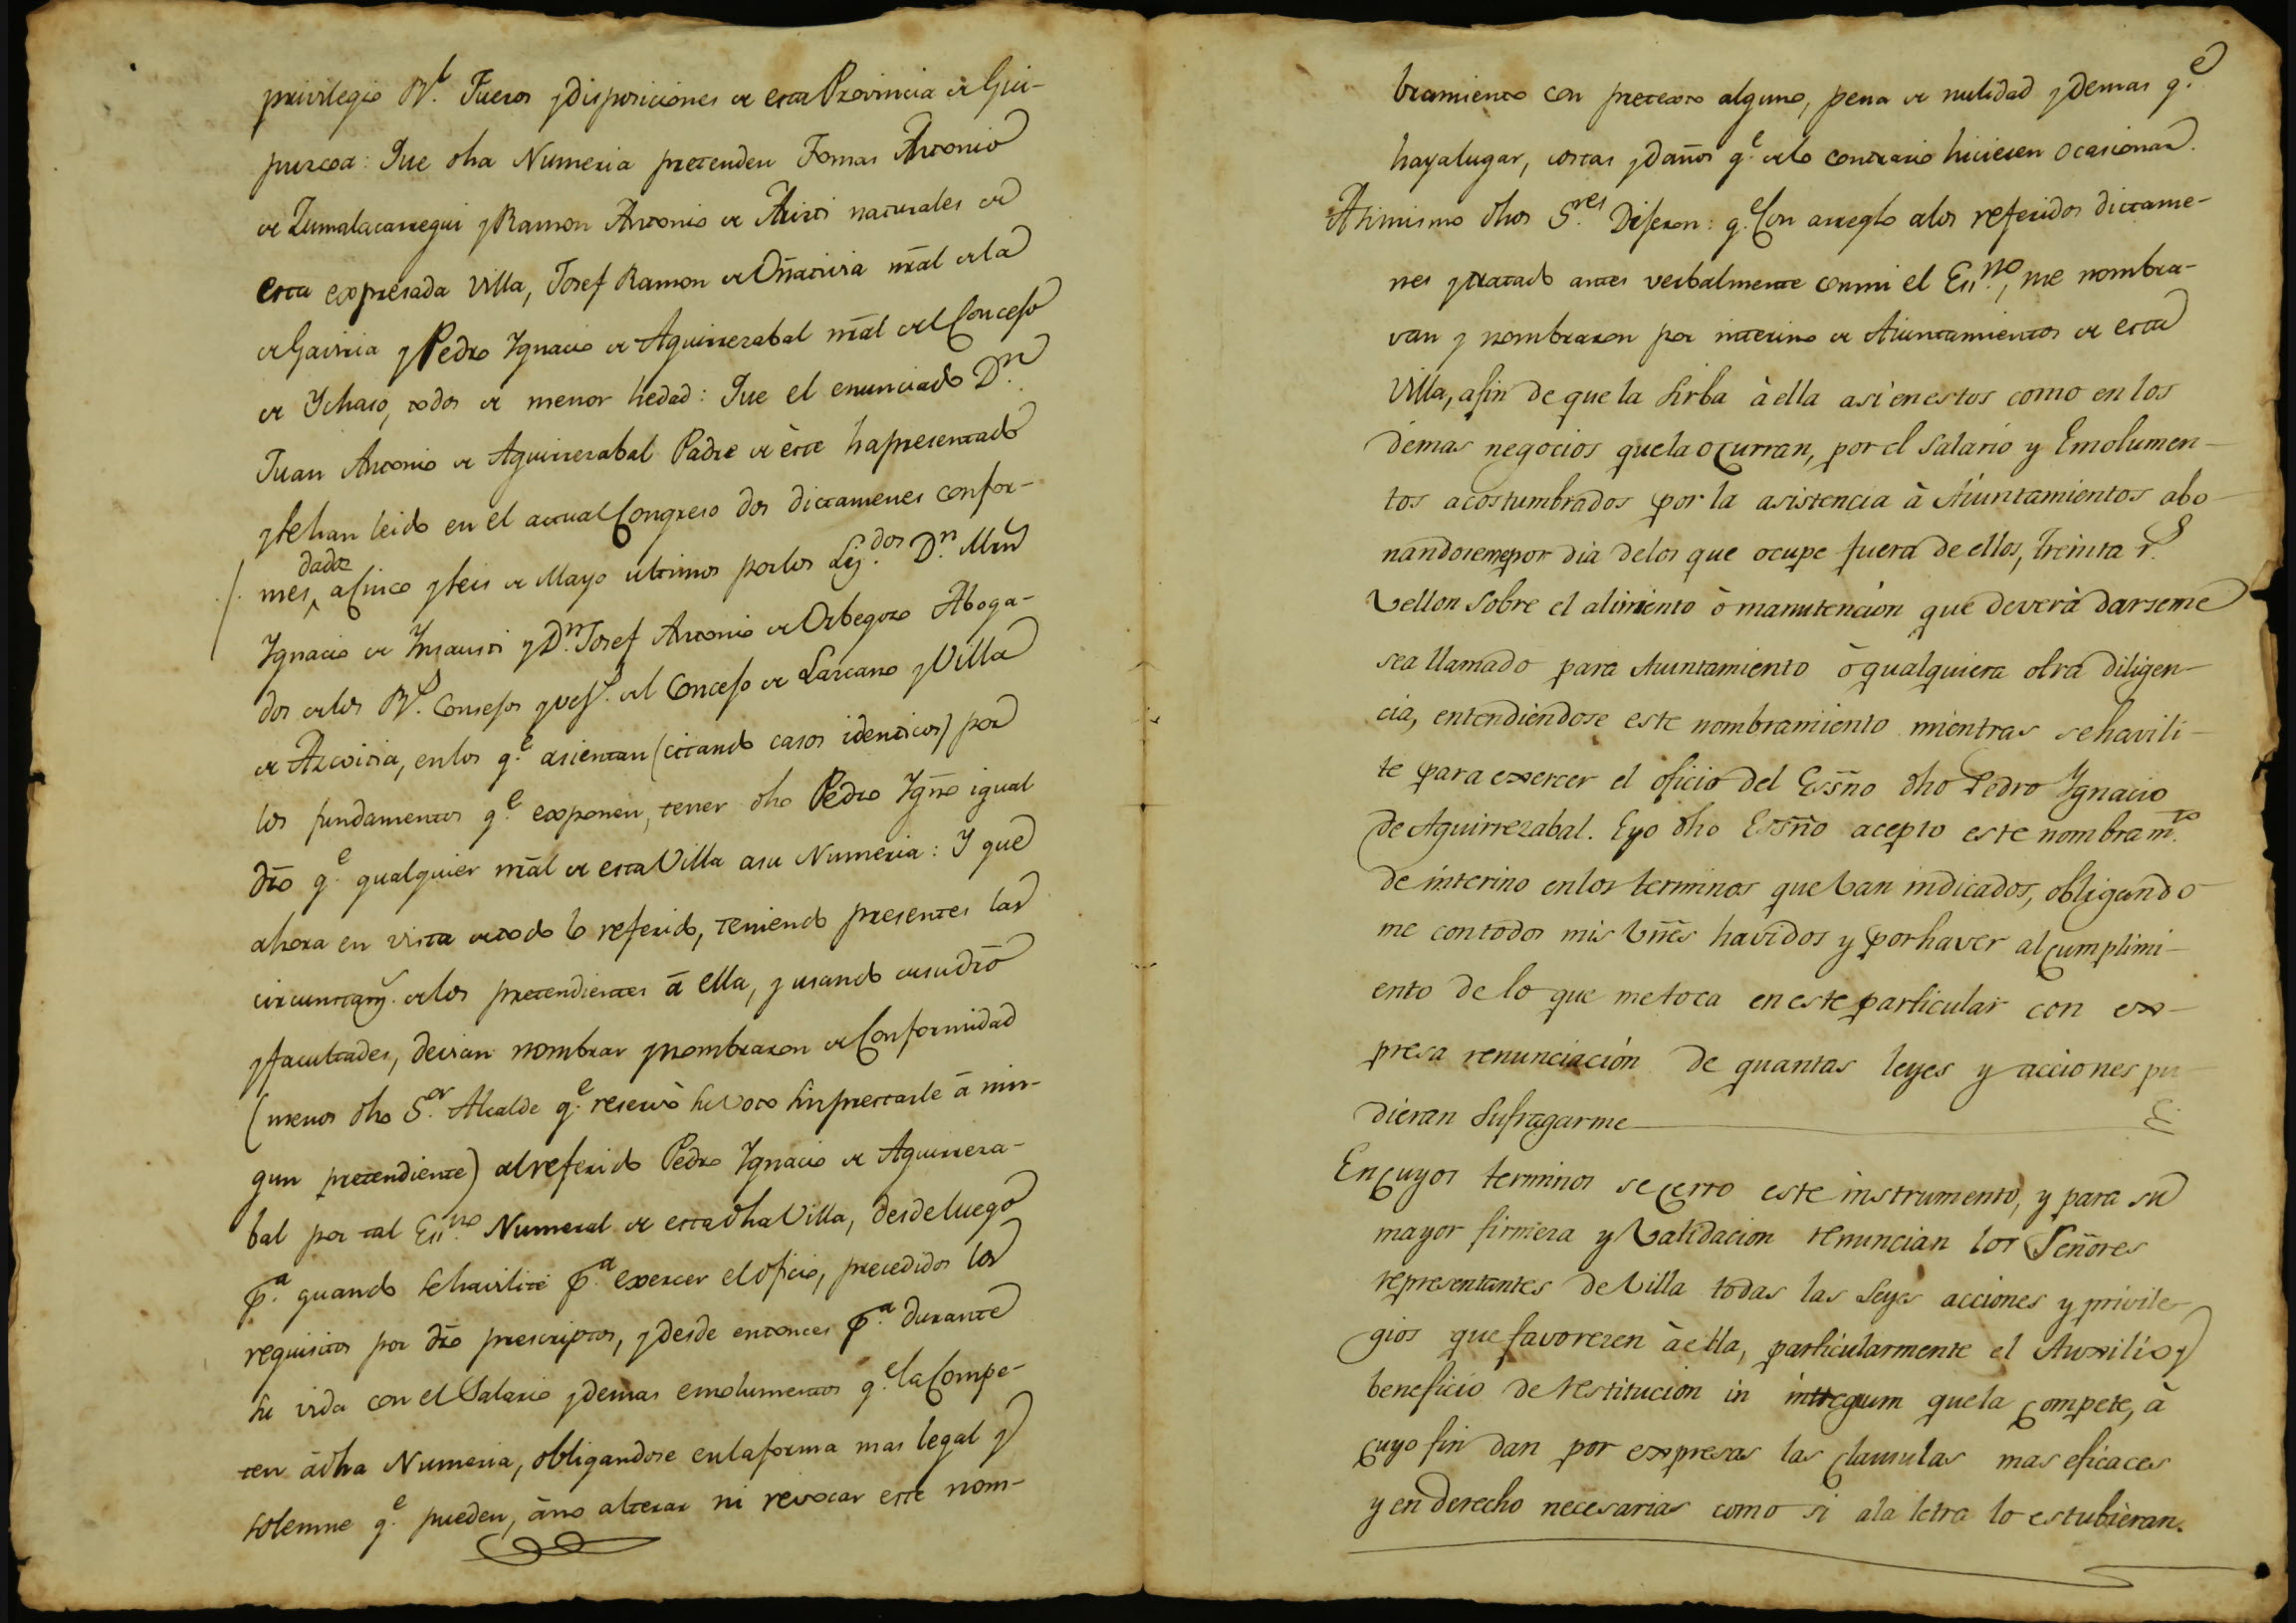 privilegio Rl. Fueros y disposiciones de esta Provincia de Gui-
puzcoa: Que dha Numeria pretenden Tomas Antonio
de Zumalacarregui y Ramon Antonio de Aristi naturales de
esta expresada Villa, Josef Ramon de Oñativia nral de la
de Gaviria y Pedro Ygnacio de Aguirrezabal nral del Concejo
de Ychaso, todos de menor hedad: Que el enunciado Dn.
Juan Antonio de Aguirrezabal Padre de èste ha presentado
y se han leido en el actual Congreso dos dictamenes confor-
mes, dados a Cinco y seis de Mayo ultimos por los Lizdos. Dn. Mrn
Ygnacio de Ynsausti y Dn. Josef Antonio de Orbegozo Aboga-
dos de los Rs. Consejos y vezs. del Concejo de Lazcano y Villa
de Azcoitia, en los qe. asientan (citando casos identicos) por
los fundamentos qe. exponen, tener dho Pedro Ygño igual
dro qe. qualquier nral de esta Villa a su Numeria: Y que
ahora en vista de todo lo referido, teniendo presentes las
circunstans. de los pretendientes á ella, y usando de su dro
y facultades, devian nombrar y nombraron de Conformidad
(menos dho Sor. Alcalde qe. reservò su Voto sin prestarle á nin-
gun pretendiente) al referido Pedro Ygnacio de Aguirreza-
bal por tal Essno. Numeral de esta dha Villa, desde luego
pa. quando se havilite pa. exercer el oficio, precedidos los
requisitos por dro prescriptos, y desde entonces pa. durante
su vida con el Salario y demas emolumentos qe. la Compe-
ten á dha Numeria, obligandose en la forma mas legal y
solemne qe. pueden, á no alterar ni revocar este nom-
bramiento con pretexto alguno, pena de nulidad y demas qe.
haya lugar, costas y daños qe. de lo contrario hiciesen ocasionar.
Asimismo dhos Sres. Dijeron: qe. Con arreglo a los referidos dictame-
nes y tratado antes verbalmente con mi el Essno., me nombra-
van y nombraron por interino de Aiuntamientos de esta
Villa, a fin de que la sirba à ella asi en estos como en los
demas negocios que la ocurran, por el Salario y Emolumen-
tos acostumbrados por la asistencia à Aiuntamientos abo-
nandoseme por dia de los que ocupe fuera de ellos, treinta rs.
Vellon sobre el alimento ò manutencion que deverà darseme
sea llamado para Aiuntamiento ò qualquiera otra diligen-
cia, entendiendose este nombramiento mientras se havili-
te para exercer el oficio del Essño dho Pedro Ygnacio
de Aguirrezabal. Eyo dho Essño acepto este nombramto.
de interino en los terminos que Van indicados, obligando
me con todos mis Vñes havidos y por haver al cumplimi-
ento de lo que me toca en este particular con ex-
presa renunciación de quantas leyes y acciones pu-
dieran Sufragarme
En cuyos terminos se cerro este instrumento, y para su
mayor firmeza y Validacion renuncian los Señores
representantes de Villa todas las Leyes acciones y privile-
gios que favorezen à ella, particularmente el Auxilio y
beneficio de restitucion in integrum que la compete, à
cuyo fin dan por expresas las clausulas mas eficaces
y en derecho necesarias como si a la letra lo estubieran.